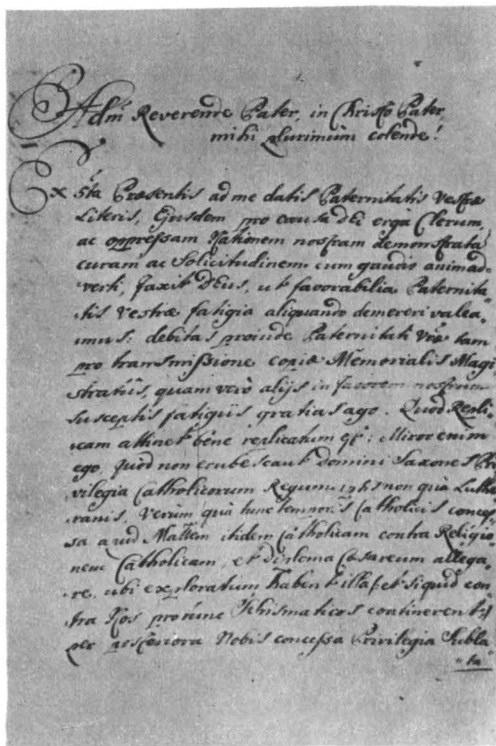 Adm Reverende Pater, in Christo Pater
mihi plurimum colende!
Ex 5ta Præsentis ad me datis Paternitatis Vestræ
Literis, Ejusdem pro causa DEI erga Clerum,
ac oppressam Nationem nostram demonstrata
curam ac Solicitudinem cum gaudio animad=
verti, faxit DEUS, ut favorabilia Paternita=
tis Vestræ fatigia aliquando demereri valea=
mus: debitas proinde Paternitati Vræ tam
pro transmissione copiæ Memorialis Magi
stratûs, quam verò alijs in favorem nostrum
susceptis fatiguis gratias ago. Quod Repli,
cam attinet bene replicatum est: Miror enim
ego, quod non erubescant Domini Saxones Pri
vilegia Catholicorum Regum, non quà Luthe
ranis, verum quà tunc temporis Catholicis conces
sa apud Mattem itidem Catholicam contra Religio
nem Catholicam, et diploma Cæsareum allega
re, ubi exploratum habent illa, et siquid con
tra Nos pro tunc Schismaticos continerent,
per posteriora Nobis concessa Privilegia Subla
"ta"